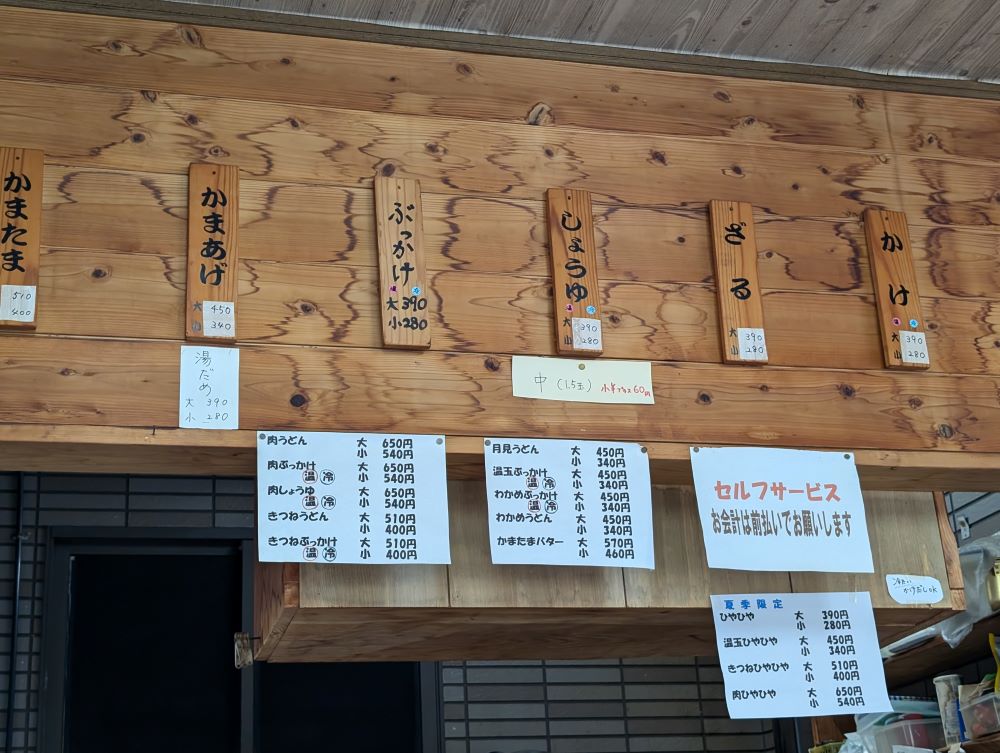 かまたま
510
400
かまあげ
大 450
小 340
ぶっかけ
温 冷
大 390
小 280
しょうゆ
温 冷
大 390
小 280
ざる
大 390
小 280
かけ
温 冷
大 390
小 280
湯だめ
大 390
小 280
中 (1.5玉) 小+プラス60円
肉うどん 大 650円
小 540円
肉ぶっかけ 大 650円
温 冷 小 540円
肉しょうゆ 大 650円
温 冷 小 540円
きつねうどん 大 510円
小 400円
きつねぶっかけ 大 510円
温 冷 小 400円
月見うどん 大 450円
小 340円
温玉ぶっかけ 大 450円
温 冷 小 340円
わかめぶっかけ 大 450円
温 冷 小 340円
わかめうどん 大 450円
小 340円
かまたまバター 大 570円
小 460円
セルフサービス
お会計は前払いでお願いします
冷たい
かけだしOK
夏季限定
ひやひや 大 390円
小 280円
温玉ひやひや 大 450円
小 340円
きつねひやひや 大 510円
小 400円
肉ひやひや 大 650円
小 540円